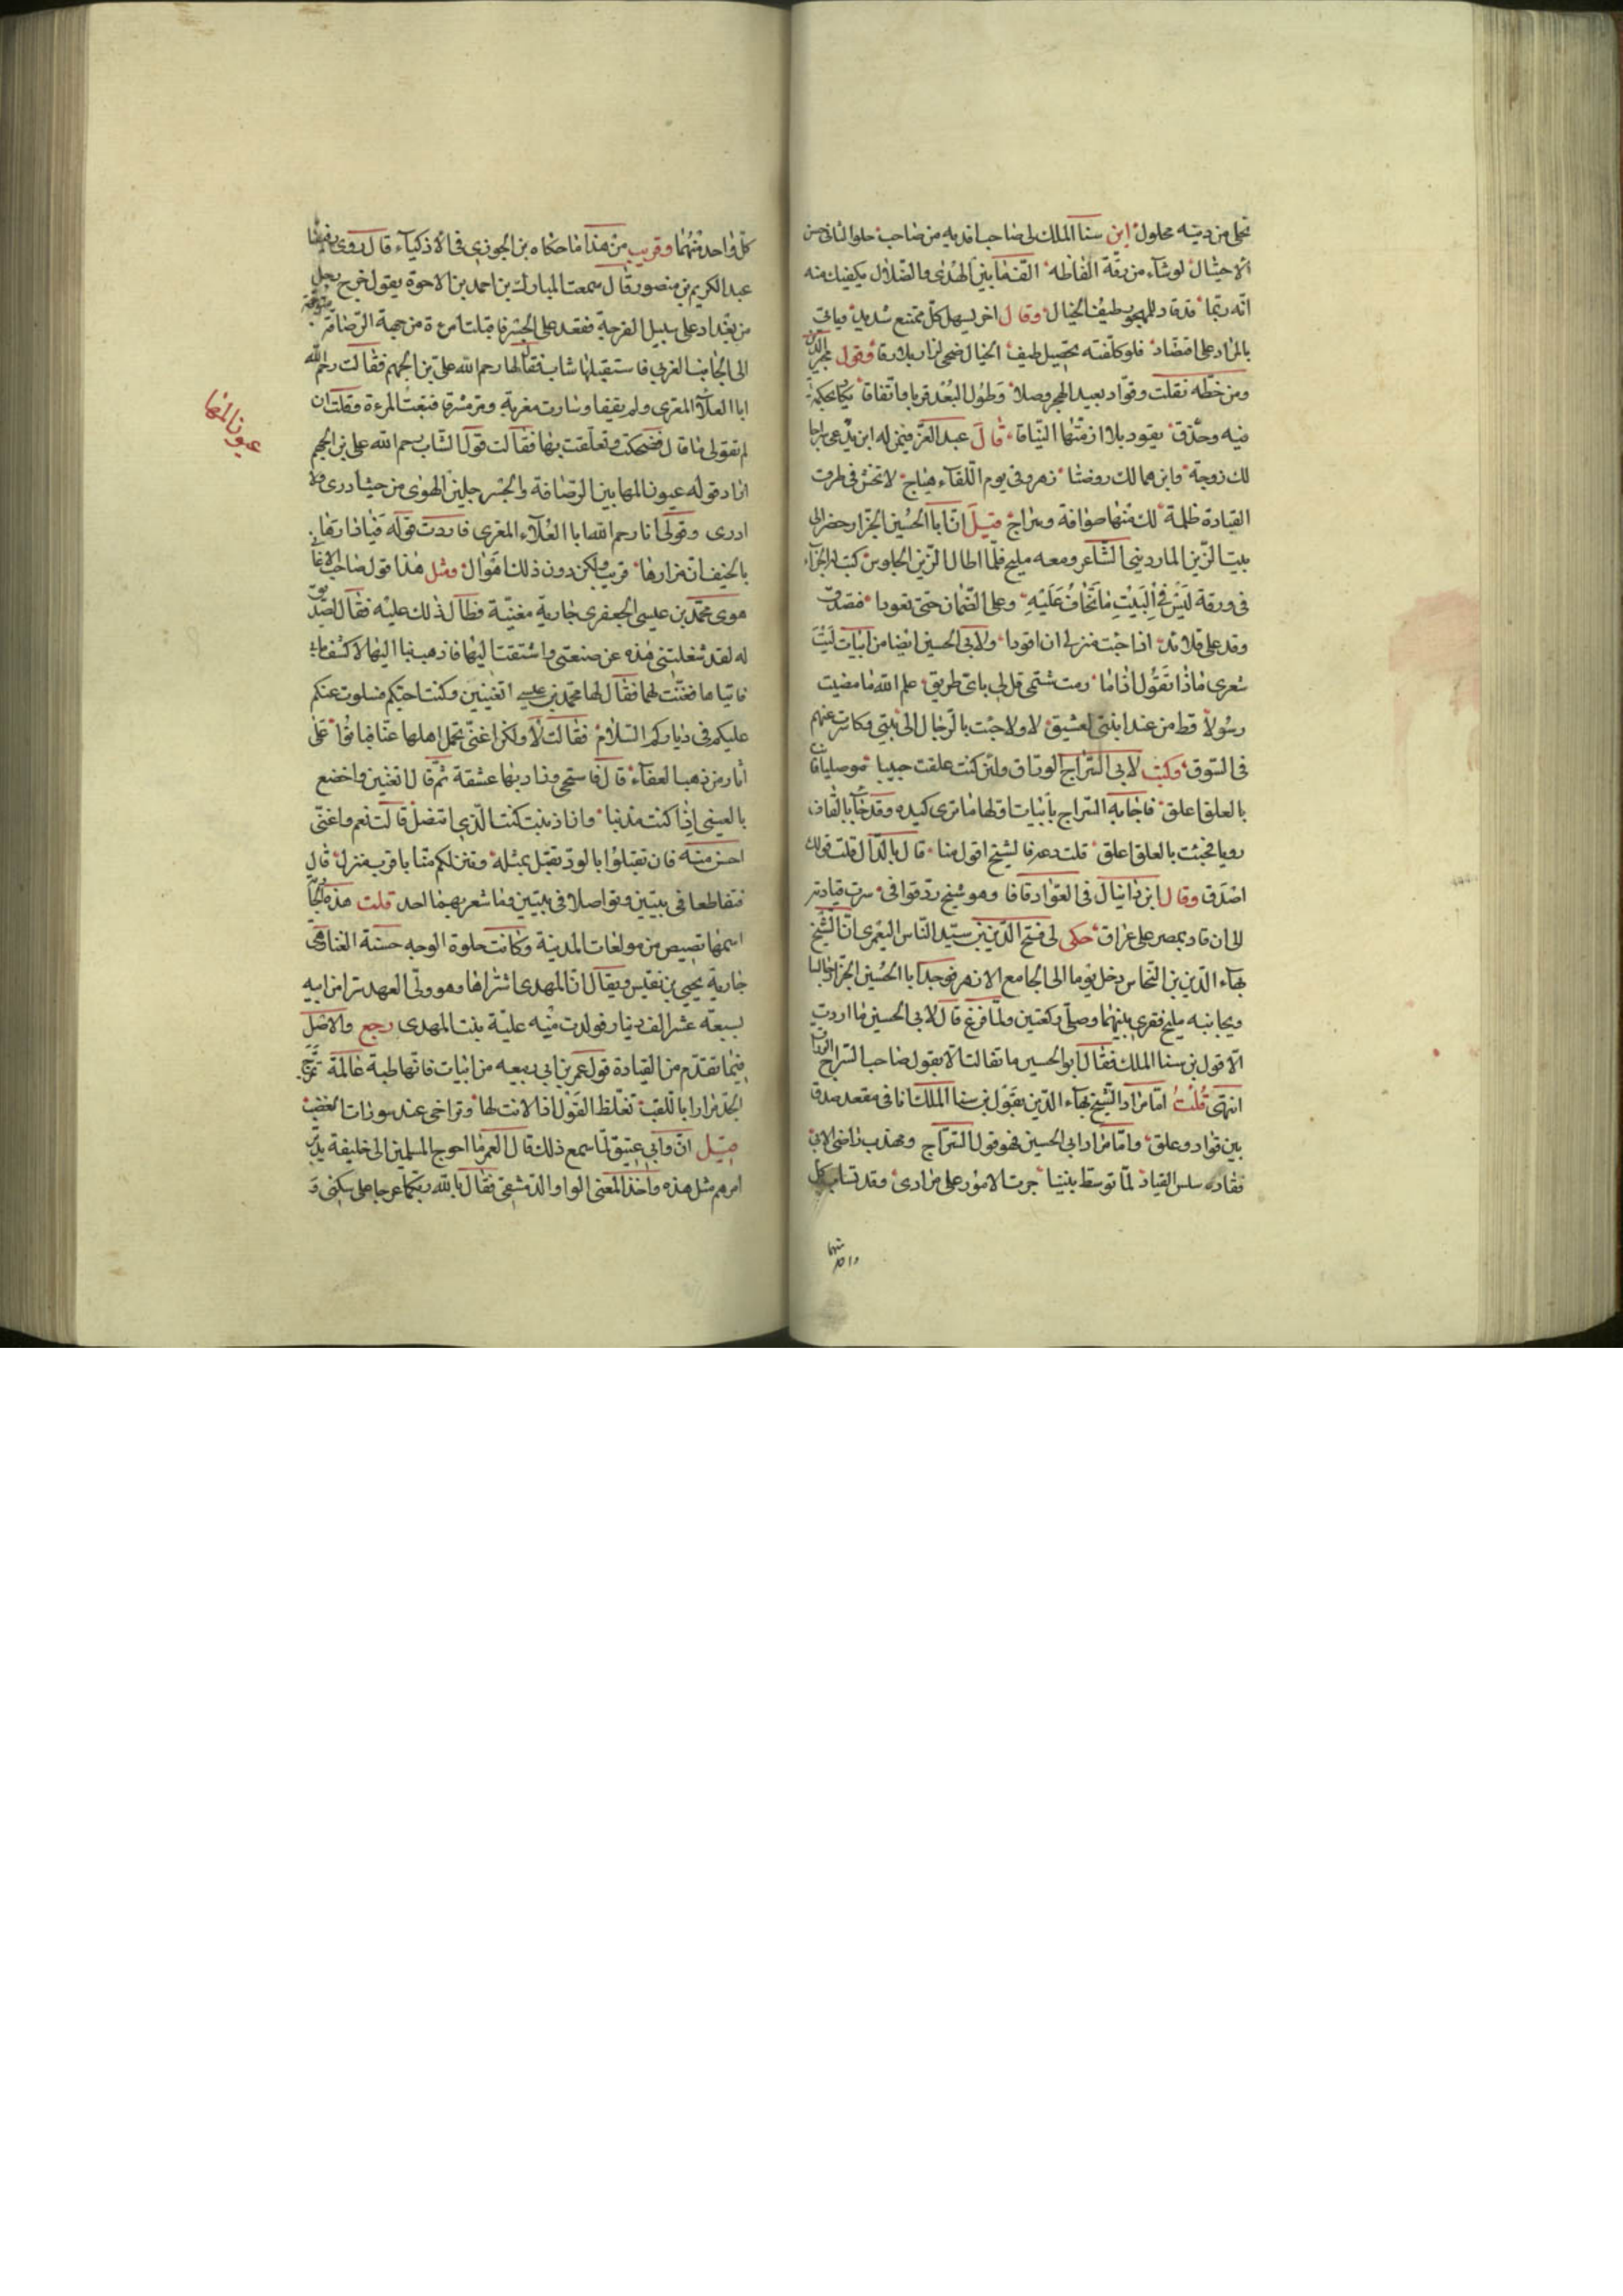 تجلى من ديته محلول ابن سنا الملك لى صاحب افديه من صاحب حلو التانى حسن
الاحتيال لوشاء من رقة الفاظه الف ما بين الهدى والضلال يكفيك منه
انه ربما قد قاد للمهجور طيف الخيال وقال اخر يسهل كل ممتنع شديد وياتى
بالمراد على اقتصاد فلو كلفته تحصيل طيف الخيال ضحى لزار بلا رقاد وقول مجير الدين
ومن خطه نقلت وقواد بعيد الهجر وصلا وطول البعد قربا واتفاقا يكاد بحكمة
فيه وحذق يقود بلا ازمتها النياقا قال عبد العزيز فيمن له ابن يدعى سراجا
لك زوجة وابن هما لك روضتا زهر وفى يوم اللقاء هياج لا تخش فى طرق
القيادة ظلمة لك منها صوافة وسراج قيل ان ابا الحسين الجزار حضر الى
بيت الزين الماردينى الشاعر ومعه مليح فلما اطال الزين الجلوس كتب له الجزار
فى ورقة ليس فى البيت ما تخاف عليه وعلى الضمان حتى تعودا فتصدق
وقد على فلا بد اذا جئت منزلى ان اقودا ولابى الحسين ايضا من ابيات ليت
شعرى ماذا تقول اذا ما رمت شتمى قل لى باى طريق علم الله ما مضيت
رسولا قط من عند ابنتى لعشيق لا ولا جئت بالرجال الى بيتى وكاسرت عنهم
فى السوق وكتب لابى السراج الوراق ولئن كنت علقت حبيبا موصليا فان
بالعلق اعلق فاجابه السراج بابيات اولها ما ترى كيده وقد جا بالقاف
رويا فجئت بالعلق اعلق قلت دعه فالشيخ اقول منا قال بالدال قلت قولك
اصدق وقال ابن دانيال فى القواد قافا وهو شيخ رد قوافى سرت قيادته
الى ان قاد بمصر على عراق حكى لى فتح الدين بن سيد الناس اليعمرى ان الشيخ
بهاء الدين بن النحاس دخل يوما الى الجامع الازهر فوجد ابا الحسين الجزار جالسا
وبجانبه مليح ففرق بينهما وصلى ركعتين ولما فرغ قال لابى الحسين ما اردت
الا قول بن سنا الملك فقال ابو الحسين ما تفالت الا بقول صاحب السراج الوراق
انتهى قلت اما مراد الشيخ بهاء الدين بقول بن سنا الملك انا فى مقعد صدق
بين قواد وعلق واما مراد ابى الحسين فهو قول السراج ومهذب راضى الابى
فقاده سلس القياد لما توسط بيننا جرت الامور على مرادى وقد تساب كل
منهما
واحد
كل واحد منهما وقريب من هذا ما حكاه بن الجوزى فى الاذكياء قال روى رفيقنا
عبد الكريم بن منصور قال سمعت المبارك بن احمد بن الاحوة يقول خرج رجل
من بغداد على سبيل الفرجة فقعد على الجسر فاقبلت امرءة من جهة الرصافة متوجهة
الى الجانب الغربى فاستقبلها شاب فقال لها رحم الله على بن الجهم فقالت رحم الله
ابا العلاء المعرى ولم يقفا وسارت مغربة ومر مشرقا فتبعت المرءة وقلت ان
لم تقولى ما قال فضحتك وتعلقت بها فقالت قول الشاب رحم الله على بن الجهم
اراد قوله عيون المها بين الرصافة والجسر جلبن الهوى من حيث ادرى ولا
ادرى وقولى انا رحم الله ابا العلاء المعرى فاردت قوله فيا دارها
بالخيف ان مزارها قريب ولكن دون ذلك اهوال ومثل هذا قول صاحب الاغانى
هوى محمد بن عيسى الجعفرى جارية مغنية فطال ذلك عليه فقال لصديق
له لقد شغلتنى هذه عن صنعتى واشتقت اليها فاذهب بنا اليها لاكشف ما بى
فاتياها فغنت لهما فقال لها محمد بن عيسى اتغنين وكنت احبكم فسلوت عنكم
عليكم فى دياركم السلام فقالت لا ولكن اغنى تحمل اهلها عنا فبانوا على
اثار من ذهب العفاء قال فاستحى وزاد بها عشقه ثم قال تغنين واخضع
بالعتبى اذا كنت مذنبا وان اذنبت كنت الذى اتنصل قالت نعم واغنى
احسن منه فان تقبلوا بالود نقبل بمثله وننزلكم منا باقرب منزل قال
فتقاطعا فى بيتين وتواصلا فى بيتين وما شعر بهما احد قلت هذه الجارية
اسمها بصيص من مولدات المدينة وكانت حلوة الوجه حسنة الغنا وهى
جارية يحيى بن نفيس ويقال ان المهدى اشتراها وهو ولى العهد سرا من ابيه
بسبعة عشر الف دينار فولدت منه علية بنت المهدى رجع والاصل
فيما تقدم من القيادة قول عمر بن ابى ربيعه من ابيات فاتها طبة عالمة تمزج
الجد مرارا باللعب تغلظ القول اذا لانت لها وتراخى عند سورات الغضب
قيل ان ابى عتيق لما سمع ذلك قال لعمر ما احوج المسلمين الى خليفة يدبر
امرهم مثل هذه واخذ المعنى الواوا الدمشقى فقال بالله ربكما عوجا على سكنى و
عيون المها